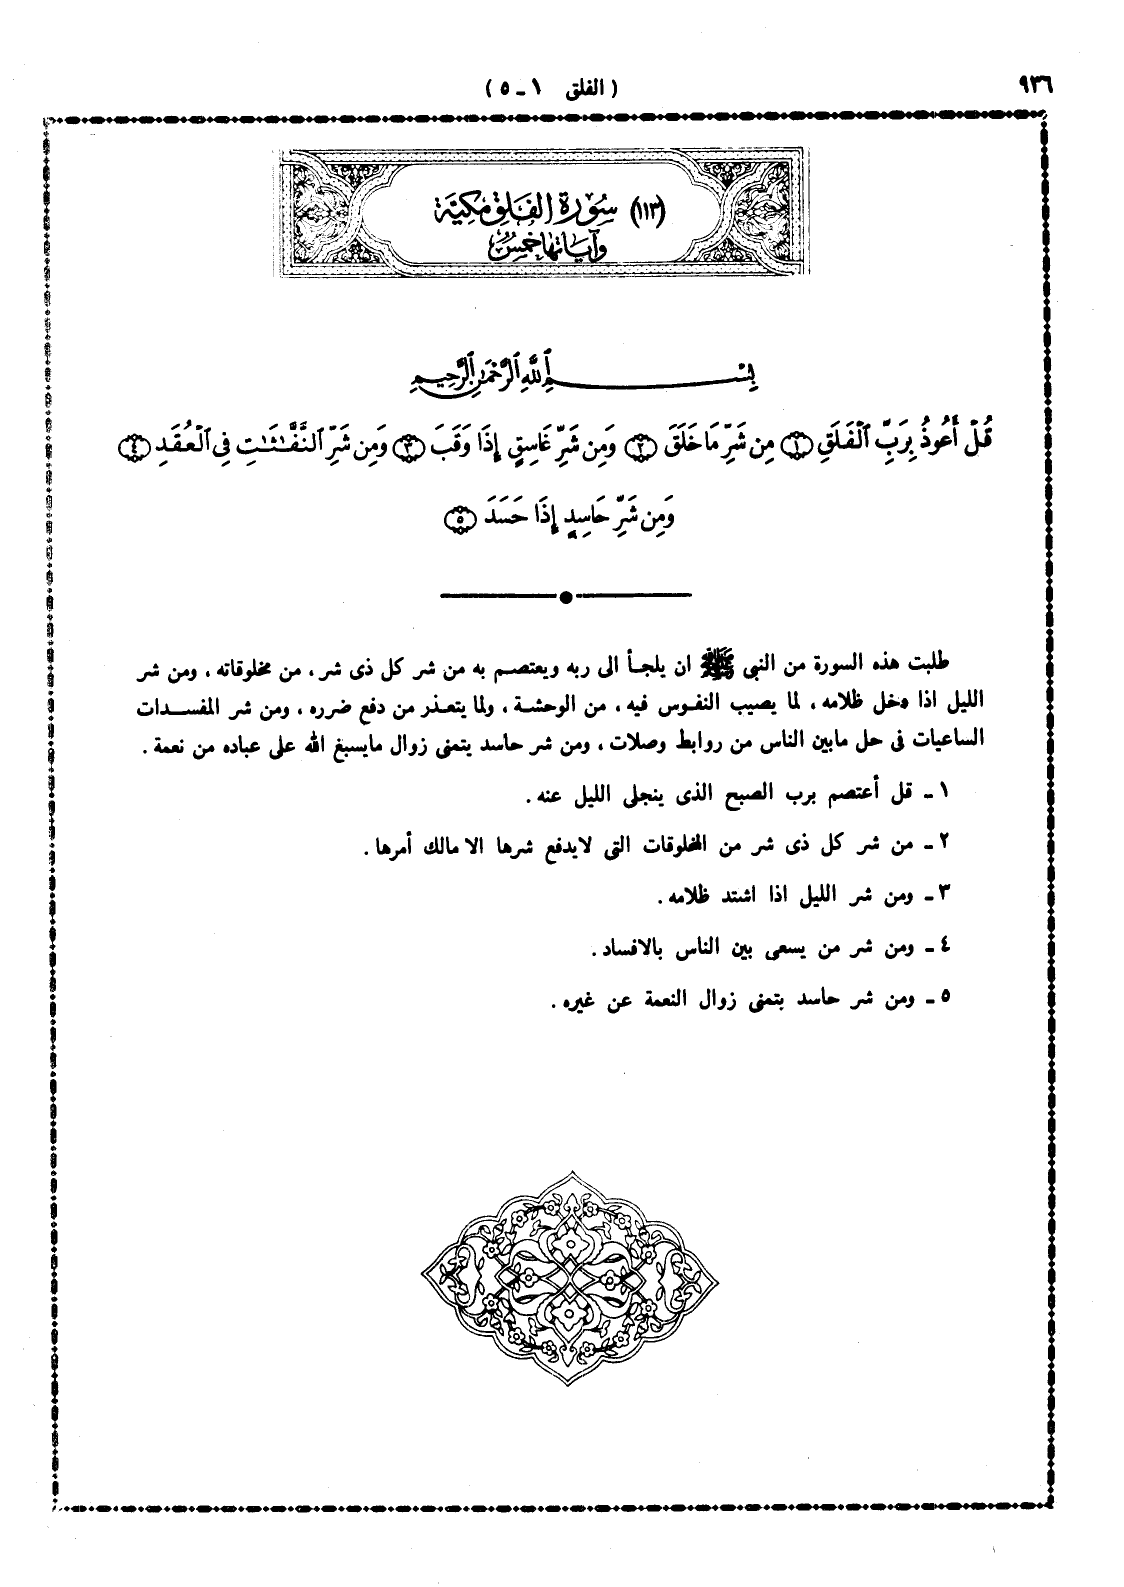 ٩٣٦
( الفلق ١ ـ ٥ )
(١١٣) سُورَة الفَلق مَكيَّة
وَآياتها خمسٌ
بِسْمِ ٱللَّهِ ٱلرَّحْمَٰنِ ٱلرَّحِيمِ
قُلْ أَعُوذُ بِرَبِّ ٱلْفَلَقِ ١ مِن شَرِّ مَا خَلَقَ ٢ وَمِن شَرِّ غَاسِقٍ إِذَا وَقَبَ ٣ وَمِن شَرِّ ٱلنَّفَّٰثَٰتِ فِي ٱلْعُقَدِ ٤
وَمِن شَرِّ حَاسِدٍ إِذَا حَسَدَ ٥
طلبت هذه السورة من النبى ﷺ ان يلجأ الى ربه ويعتصم به من شر كل ذى شر ، من مخلوقاته ، ومن شر
الليل اذا دخل ظلامه ، لما يصيب النفوس فيه ، من الوحشة ، ولما يتعذر من دفع ضرره ، ومن شر المفسدات
الساعيات فى حل مابين الناس من روابط وصلات ، ومن شر حاسد يتمنى زوال مايسبغ الله على عباده من نعمة .
١ ـ قل أعتصم برب الصبح الذى ينجلى الليل عنه .
٢ ـ من شر كل ذى شر من المخلوقات التى لايدفع شرها الا مالك أمرها .
٣ ـ ومن شر الليل اذا اشتد ظلامه .
٤ ـ ومن شر من يسعى بين الناس بالافساد .
٥ ـ ومن شر حاسد يتمنى زوال النعمة عن غيره .